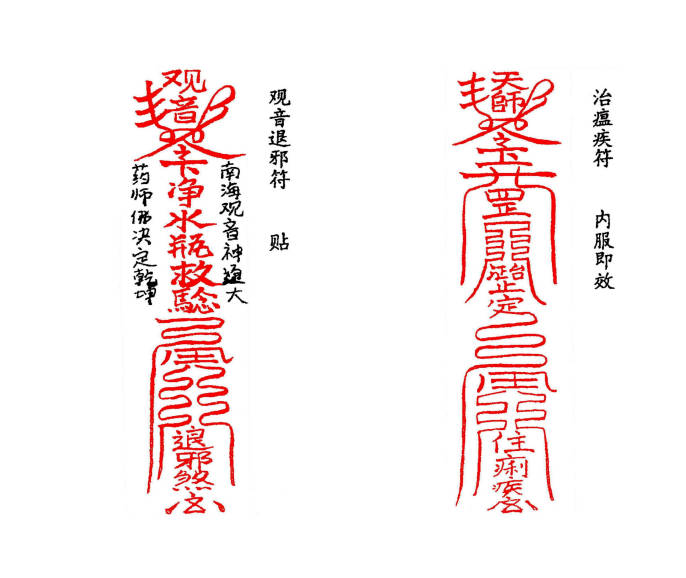 观音退邪符 贴
南海观音神通大
观音
净水瓶救
退邪煞
药师佛决定乾坤
治瘟疾符 内服即效
天師
罡
定
住痢疾